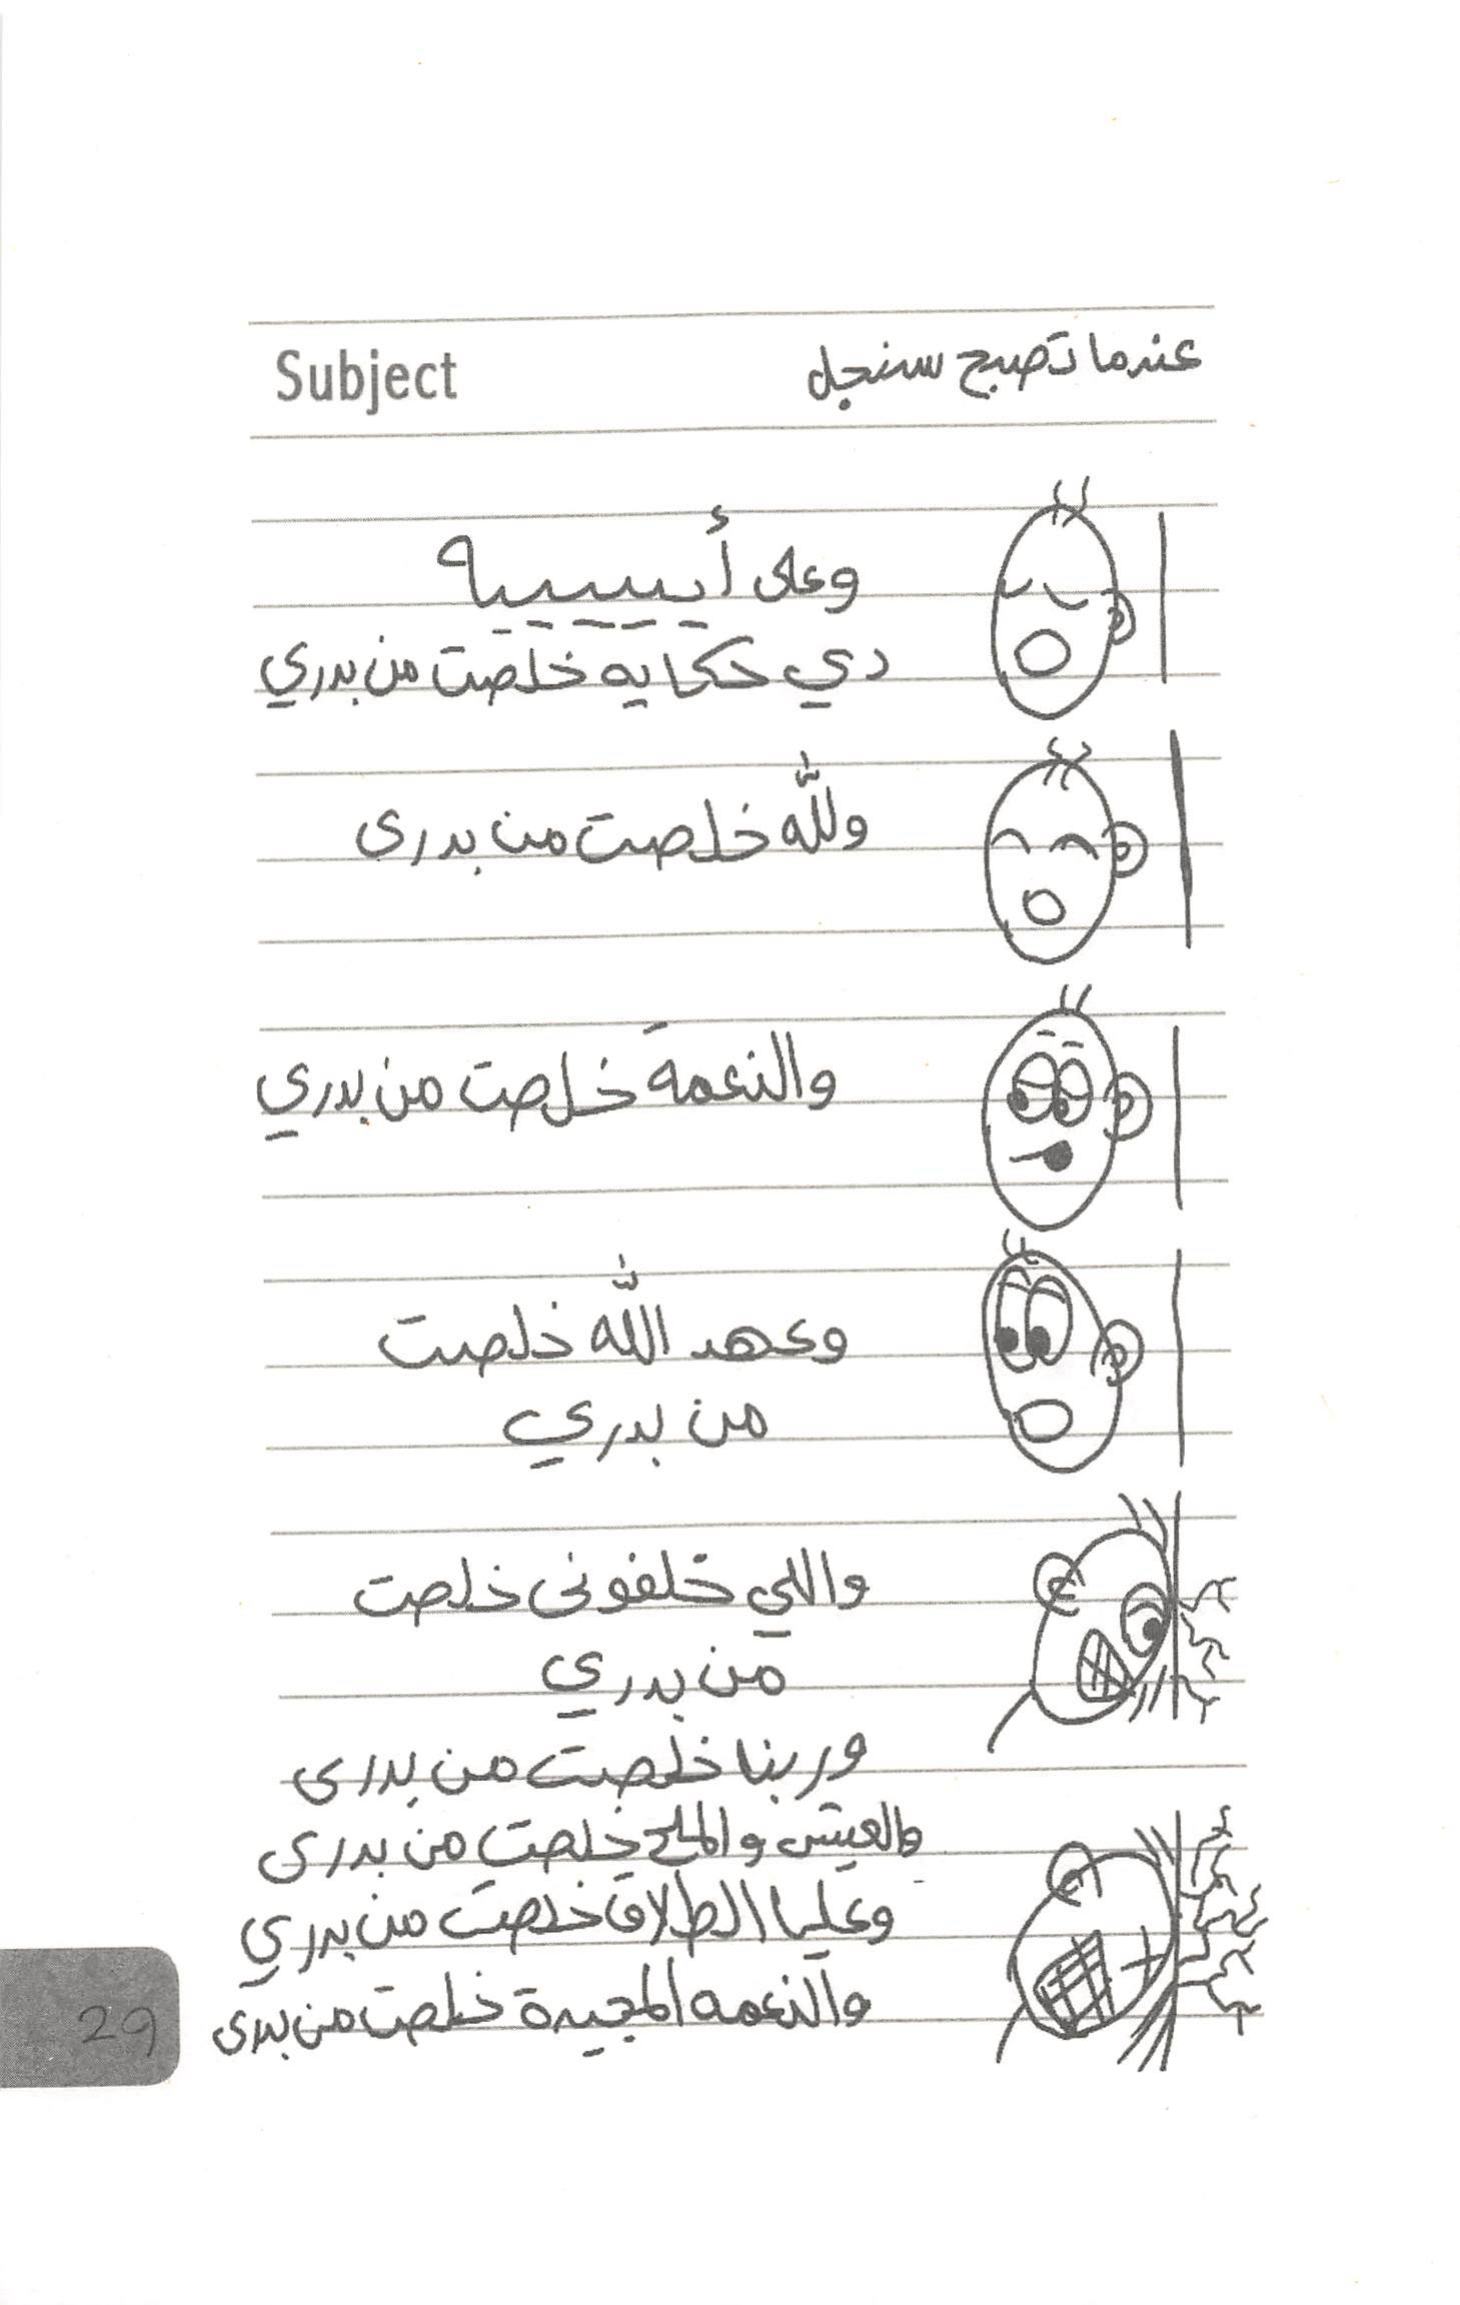 Subject
عندما تصبح سنجل
وعلى أيييييه
دي حكايه خلصت من بدري
وللّه خلصت من بدرى
والنعمة خلصت من بدري
وعهد اللّه خلصت
من بدري
واللي خلفونى خلصت
من بدري
وربنا خلصت من بدرى
والعيش والملح خلصت من بدرى
وعليا الطلاق خلصت من بدري
والنعمه المجيدة خلصت من بدرى
29